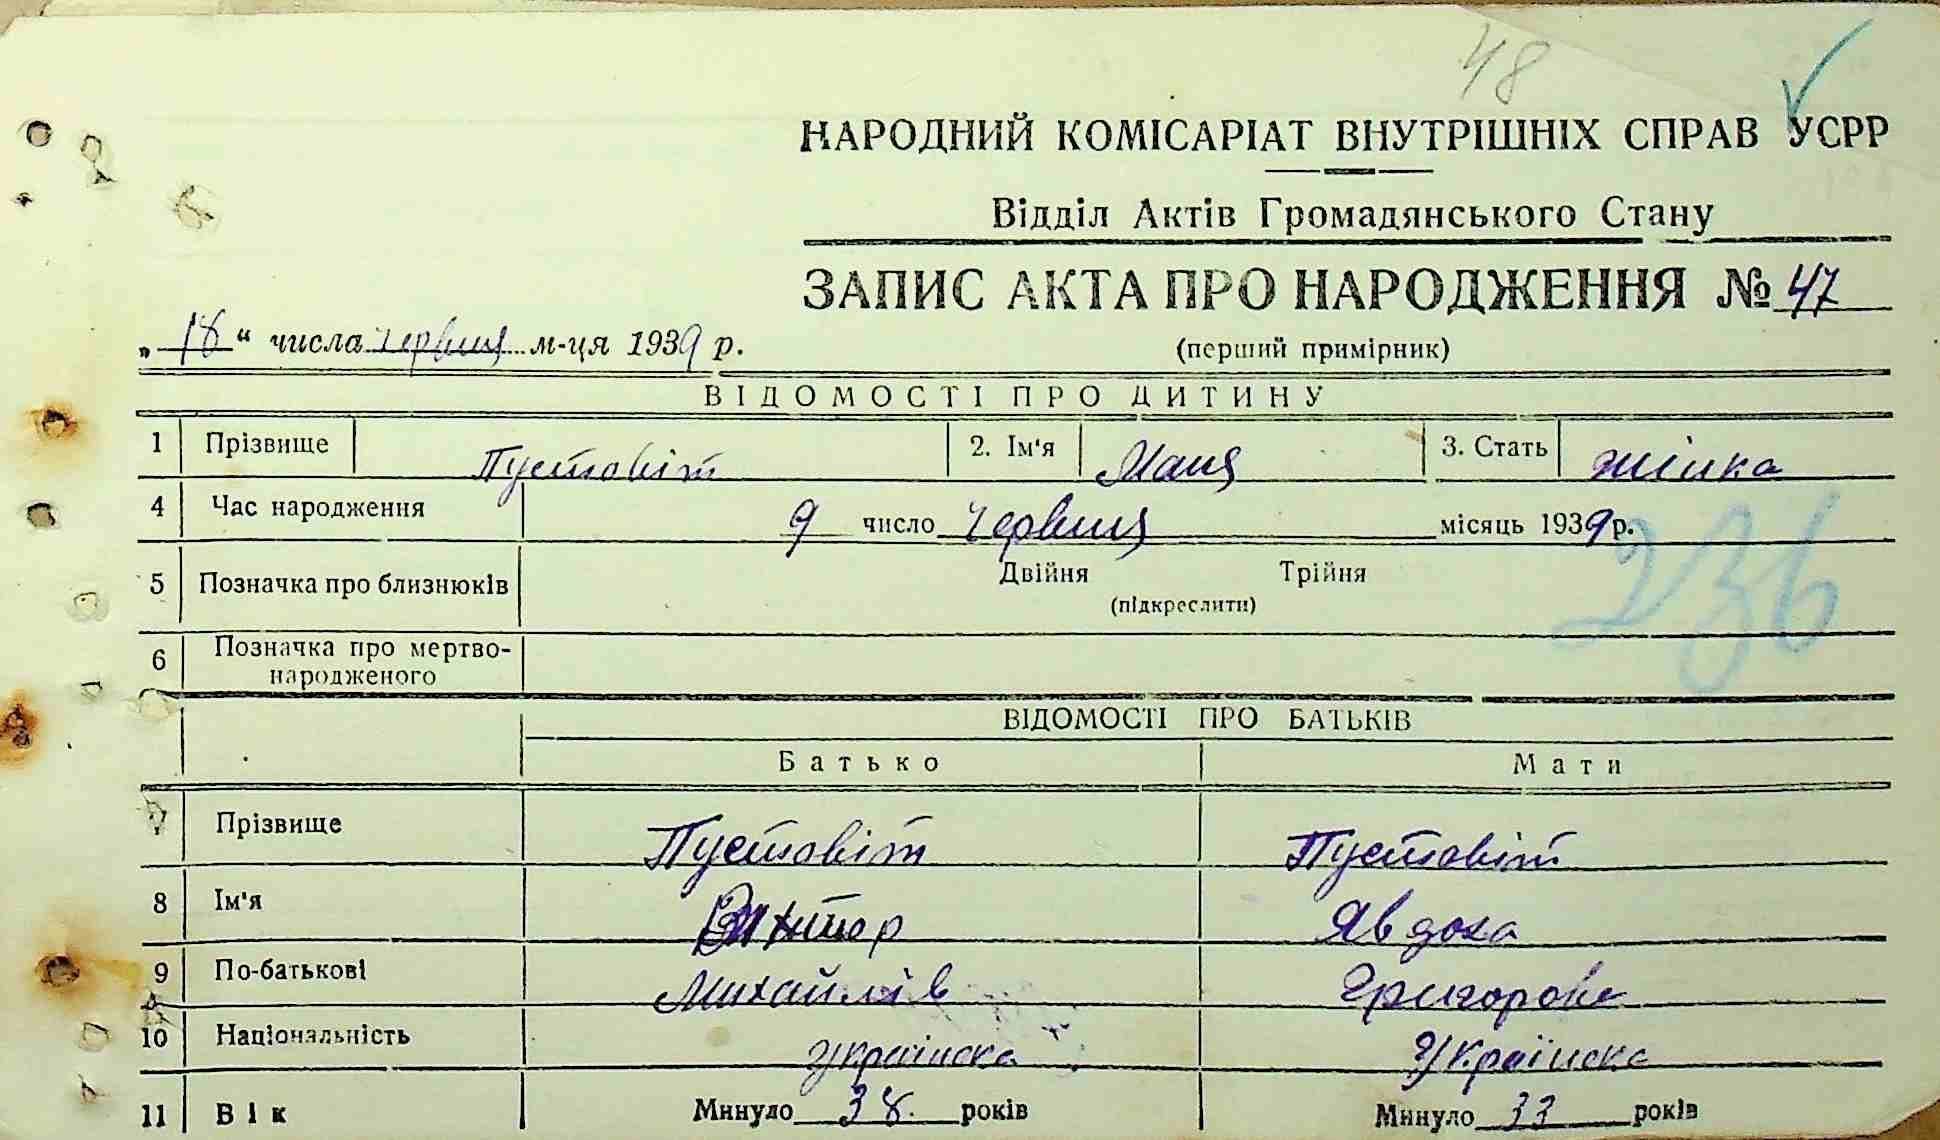 48
НАРОДНИЙ КОМІСАРІАТ ВНУТРІШНІХ СПРАВ УСРР
Відділ Актів Громадянського Стану
ЗАПИС АКТА ПРО НАРОДЖЕННЯ № 47
„18“ числа червня м-ця 1939 р.
(перший примірник)
ВІДОМОСТІ ПРО ДИТИНУ
1 Прізвище Пустовіт 2. Ім'я 3. Стать жінка
4 Час народження 9 число червня місяць 1939 р.
5 Позначка про близнюків Двійня Трійня
(підкреслити)
236
6 Позначка про мертво-
народженого
ВІДОМОСТІ ПРО БАТЬКІВ
Батько Мати
7 Прізвище Пустовіт Пустовіт
8 Ім'я Явдоха
9 По-батькові Михайлів Григорова
10 Національність українска Українска
11 Вік Минуло 38. років Минуло 33 років